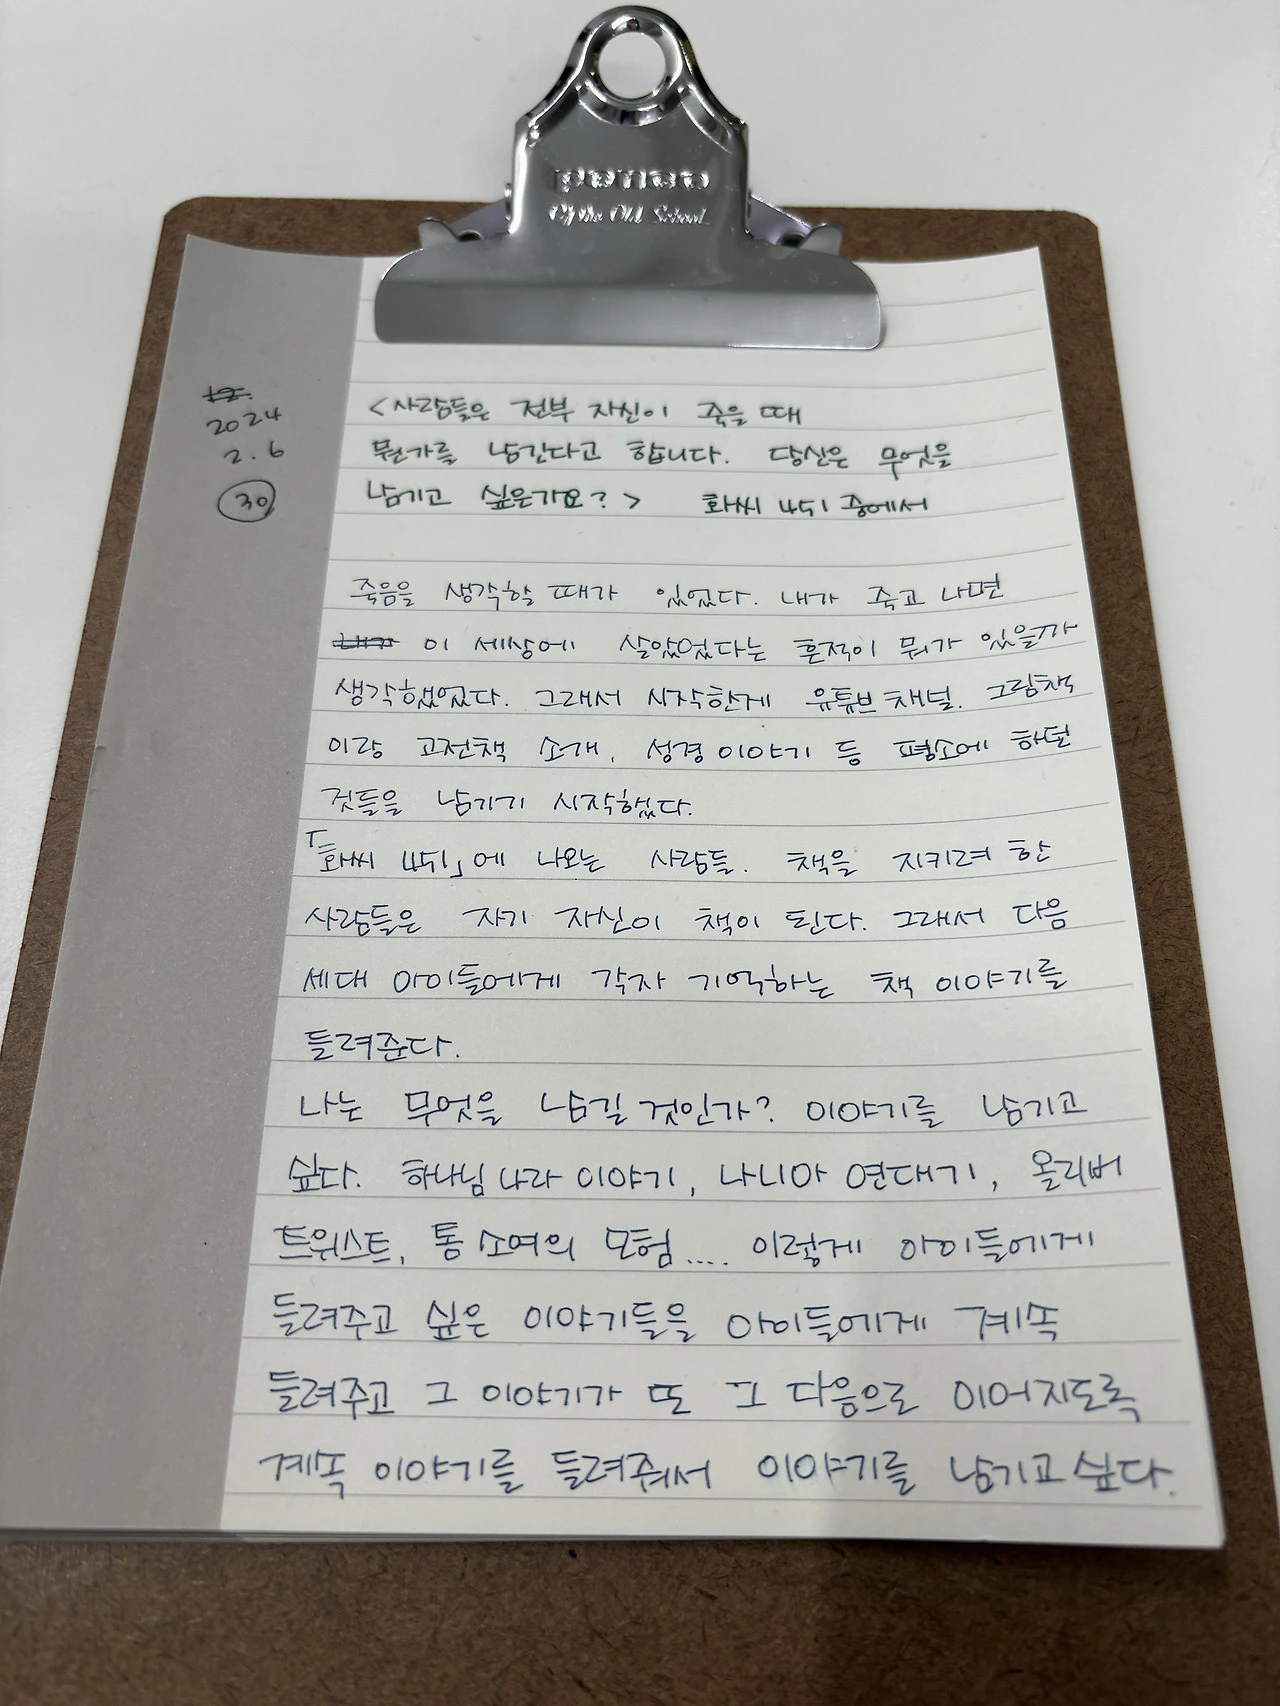 penco
Of the Old School
2024
2. 6
30
<사람들은 전부 자신이 죽을 때
뭔가를 남긴다고 합니다. 당신은 무엇을
남기고 싶은가요?> 화씨 451 중에서
죽음을 생각할 때가 있었다. 내가 죽고 나면
내가 이 세상에 살았었다는 흔적이 뭐가 있을까
생각했었다. 그래서 시작한게 유튜브 채널. 그림책
이랑 고전책 소개, 성경이야기 등 평소에 하던
것들을 남기기 시작했다.
「화씨 451」에 나오는 사람들. 책을 지키려 한
사람들은 자기 자신이 책이 된다. 그래서 다음
세대 아이들에게 각자 기억하는 책 이야기를
들려준다.
나는 무엇을 남길 것인가? 이야기를 남기고
싶다. 하나님 나라 이야기, 나니아 연대기, 올리버
트위스트, 톰 소여의 모험.... 이렇게 아이들에게
들려주고 싶은 이야기들을 아이들에게 계속
들려주고 그 이야기가 또 그 다음으로 이어지도록
계속 이야기를 들려줘서 이야기를 남기고 싶다.